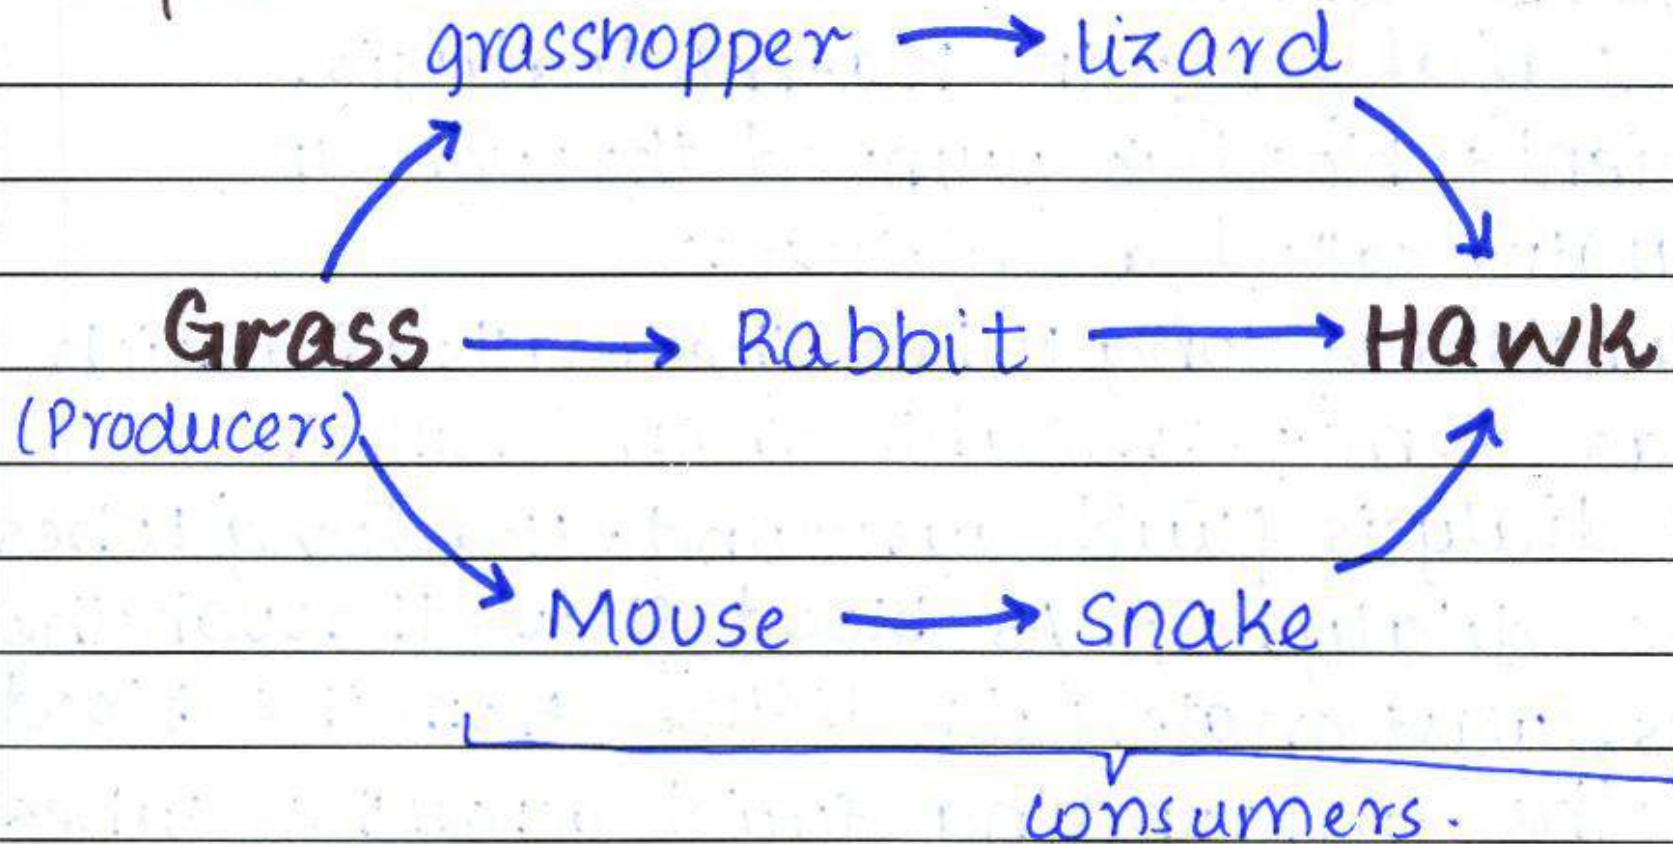 grasshopper → lizard
Grass → Rabbit → Hawk
(Producers)
Mouse → snake
consumers.